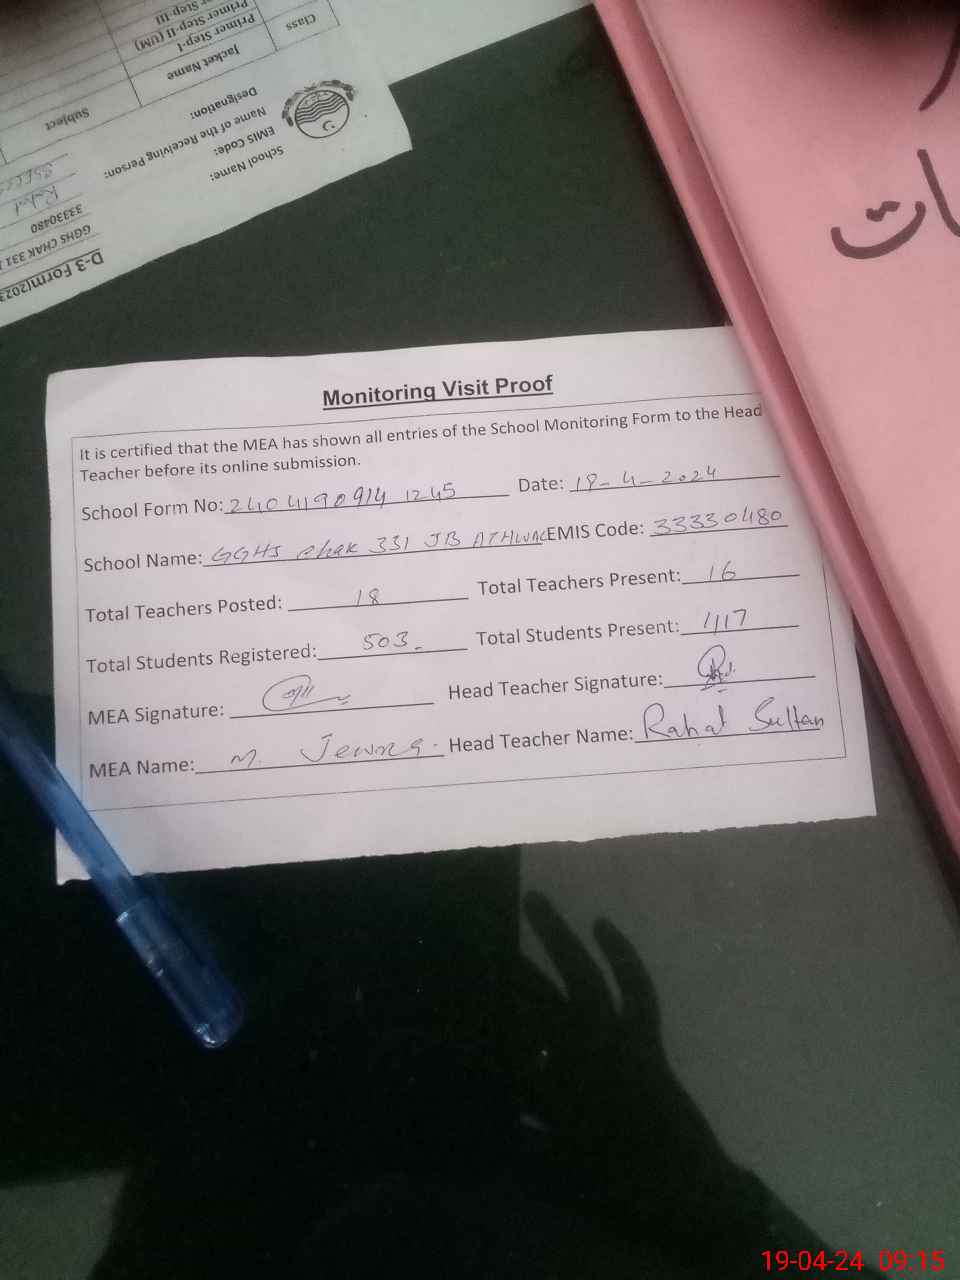 Class
Subject
Jacket Name
Primer Step-I
Primer Step-II (UM)
Primer Step-III
School Name:
EMIS Code:
Name of the Receiving Person:
Designation:
D-3 Form(202
GGHS CHAK 331
33330480
Rahat
ات
Monitoring Visit Proof
It is certified that the MEA has shown all entries of the School Monitoring Form to the Head
Teacher before its online submission.
School Form No: 2404190914 1245 Date: 19-4-2024
School Name: GGHS chak 331 JB ATHWAL EMIS Code: 33330480
Total Teachers Posted: 18 Total Teachers Present: 16
Total Students Registered: 503 Total Students Present: 417
MEA Signature: Head Teacher Signature:
MEA Name: M. Head Teacher Name: Rahat Sultan
19-04-24 09:15